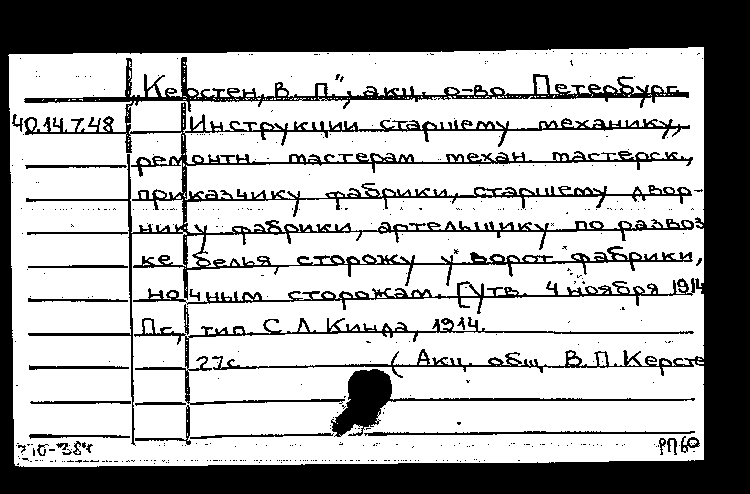 „Керстен, В. П.", акц. о-во. Петербург.
40.14.7.48 Инструкции старшему механику,
ремонтн. мастерам механ. мастерск.,
приказчику фабрики, старшему двор-
нику фабрики, артельщику по развоз
ке белья, сторожу у ворот фабрики,
ночным сторожам. [Утв. 4 ноября 1914
Пг., тип. С. Л. Кинда, 1914.
27 с. (Акц. общ. В. П. Керсте
РП60